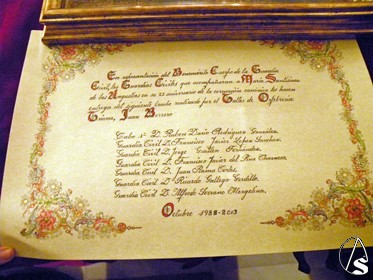 En representación del Benemérito Cuerpo de la Guardia
Civil, los Guardias Civiles que acompañaron a María Santísima
de los Angeles en su 25 aniversario de la coronación canónica os hacen
entrega del siguiente realizado por el Taller de Orfebrería
Triana, Juan Borrero
Cabo 1º D. Ruben Dario Rodriguez Gonzalez
Guardia Civil D. Francisco Javier Lopez Sanchez
Guardia Civil D. Jorge Guillen Fernandez
Guardia Civil D. Francisco Javier del Rio
Guardia Civil D. Juan Cortes
Guardia Civil D. Ricardo Gallego Gordillo
Guardia Civil D. Alfredo Serrano
Octubre 1988-2013